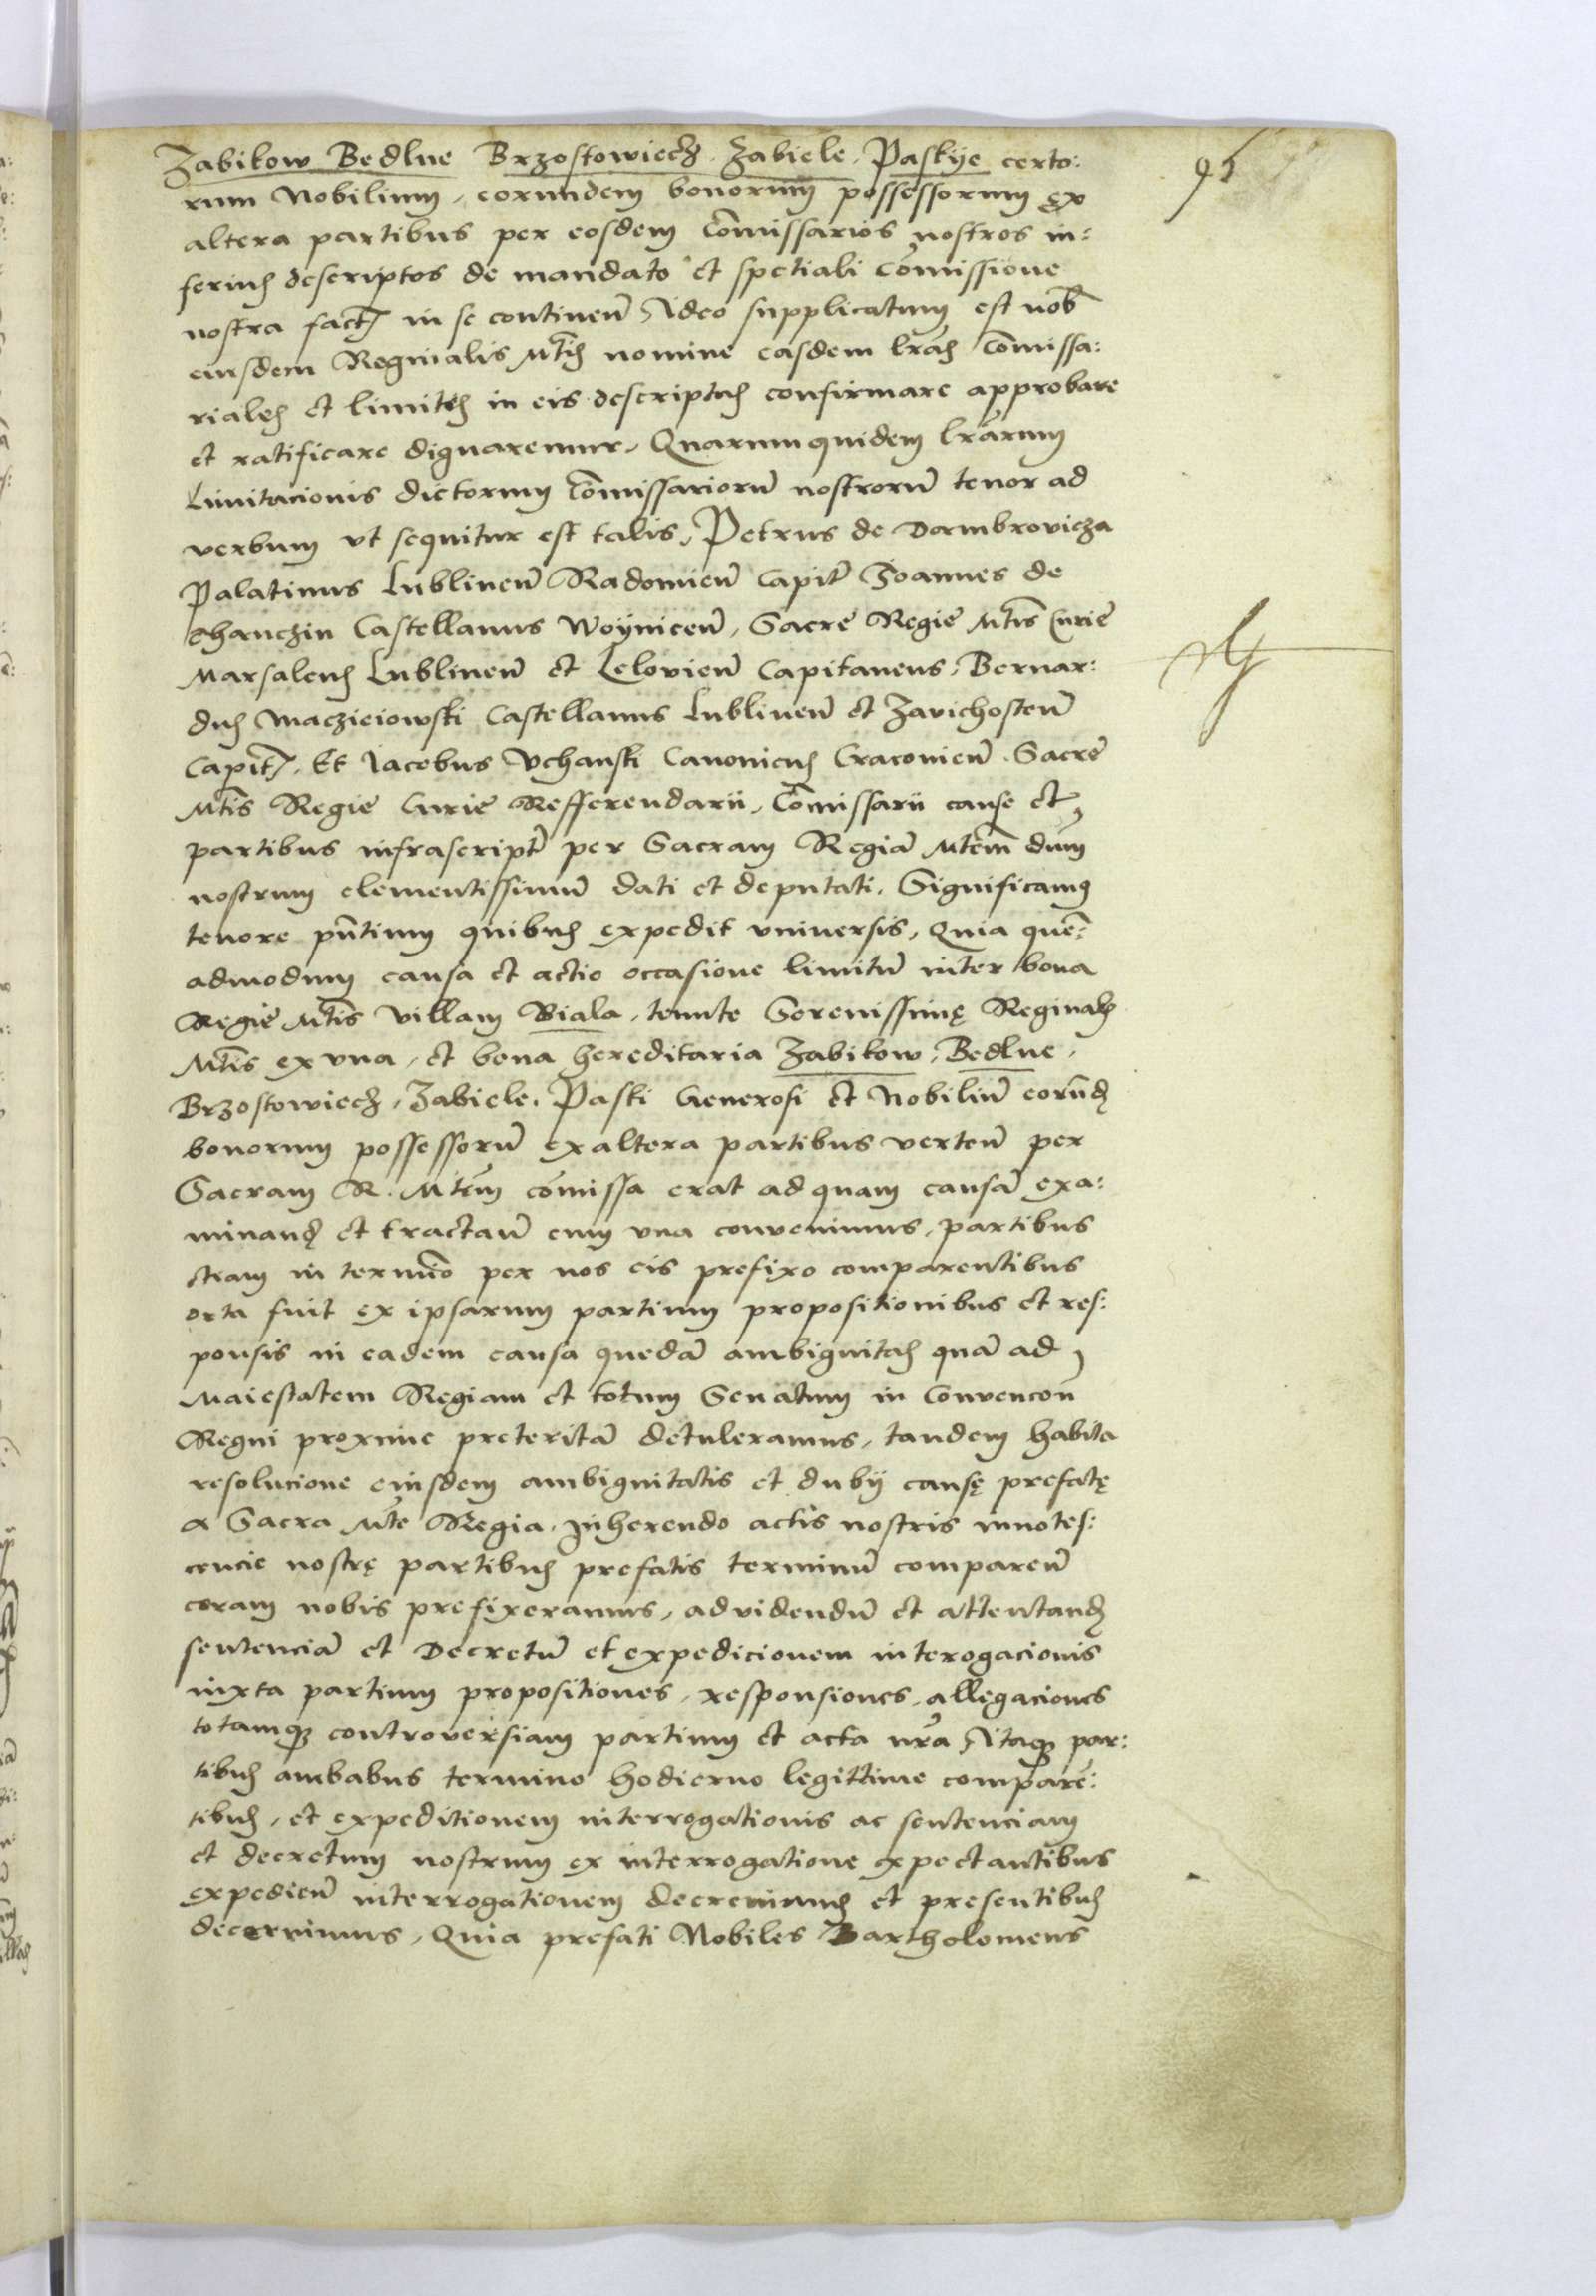 95
Zabikow Bedlne Brzostowiech. Zabiele. Paskije certo:
rum Nobilium, eorundem bonorum possessorum ex
altera partibus per eosdem Comissarios nostros in:
ferius descriptos de mandato et spetiali comissione
nostra fact in se continen Adeo supplicatum est nob
eiusdem Reginalis Mtis nomine easdem lras Comissa:
riales et limites in eis descriptas confirmare approbare
et ratificare dignaremur, Quarum quidem lrarum
Limitacionis dictorum Comissarioru nostroru tenor ad
verbum vt sequitur est talis, Petrus de Dambrovicza
Palatinus Lublinen Radomien Capit Joannes de
Thanczin Castellanus Woynicen, Sacre Regie Mtis Curie
Marsalcus Lublinen et Lelovien Capitaneus, Bernar:
dus Maczieiowski Castellanus Lublinen et Zavichosten
Capit. Et Jacobus Vchanski Canonicus Cracovien. Sacre
Mtis Regie Curie Refferendarii, Comissarii cause et
partibus infrascript per Sacram Regia Mtem dum
nostrum clementissimu dati et deputati, Significamus
tenore pntium quibus expedit vniversis, Quia que:
admodum causa et actio occasione limitu inter bona
Regie Mtis Villam Biala, tenute Serenissimę Reginalis
Mtis ex vna, et bona hereditaria Zabikow, Bedlne,
Brzostowiech, Zabiele. Paski Generosi et Nobiliu eorund
bonorum possessoru ex altera partibus verten per
Sacram R. Mtem comissa erat ad quam causa exa:
minand et tractan cum vna convenimus, partibus
etiam in termino per nos eis prefixo comparentibus
orta fuit ex ipsarum partium propositionibus et res:
ponsis in eadem causa queda ambiguitas qua ad
Maiestatem Regiam et totum Senatum in Convencon
Regni proxime preterita detuleramus, tandem habita
resolucione eiusdem ambiguitatis et dubij causę prefatę
a Sacra Mte Regia. Inherendo actis nostris innotes:
cencie nostrę partibus prefatis terminu comparen
coram nobis prefixeramus, ad videndu et attentand
sentencia et Decretu et expedicionem interogacionis
iuxta partium propositiones, responsiones, allegaciones
totamq controversiam partium et acta nra Itaq par:
tibus ambabus termino hodierno legittime compare:
tibus, et expeditionem interrogationis ac sentenciam
et decretum nostrum ex interrogatione expectantibus
expedien interrogationem decrevimus et presentibus
decernimus, Quia prefati Nobiles Bartholomeus